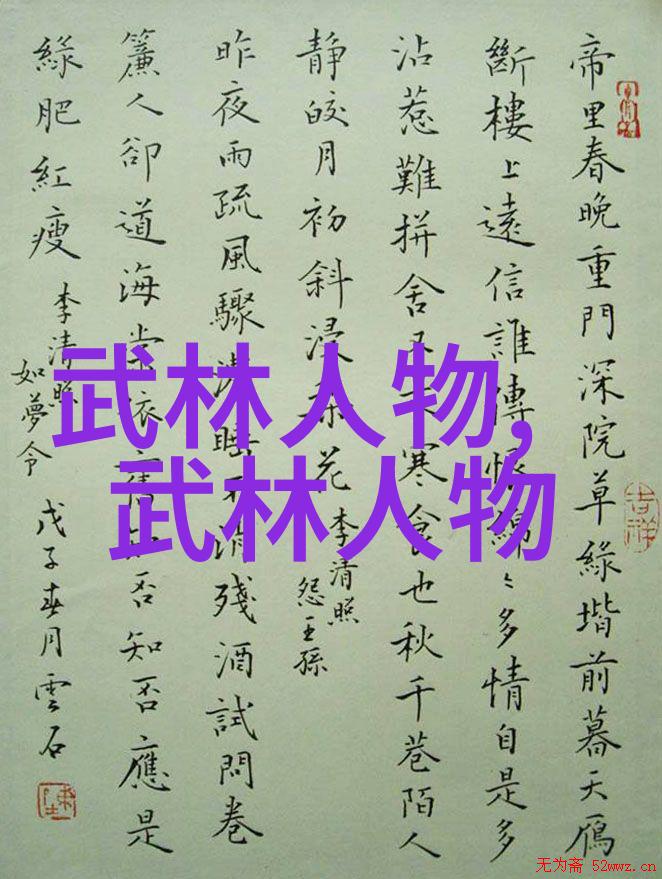 帝里春晚重門深院草緑堦前暮天鴈
斷樓上遠信誰傳恨綿〻多情自是多
沾惹難拼舍又寒食也秋千巷陌人
靜皎月初斜浸梨花
李清照
怨王孫
昨夜雨疏風驟濃睡不消殘酒試問卷
簾人卻道海棠依舊知否知否應是
緑肥紅瘦
李清照
如夢令
戊子春月雲石
吉祥
武林人物,
武林人物
无为斋 52wwz.cn